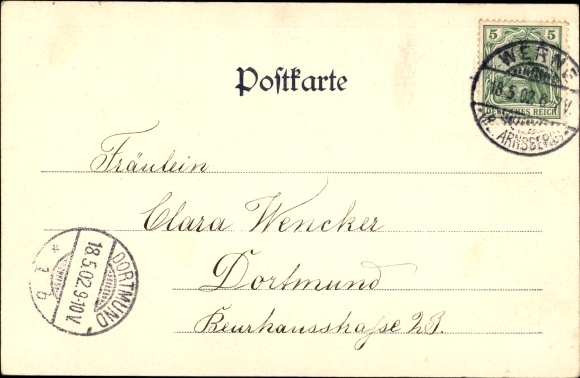 5 5
WERNE
18.5.02
DEUTSCHES REICH
(R. ARNSBERG)
Postkarte
Fräulein
Clara Wencker
Dortmund
Beurhausstraße 23.
DORTMUND
18.5.02.9-10V
* 1 b